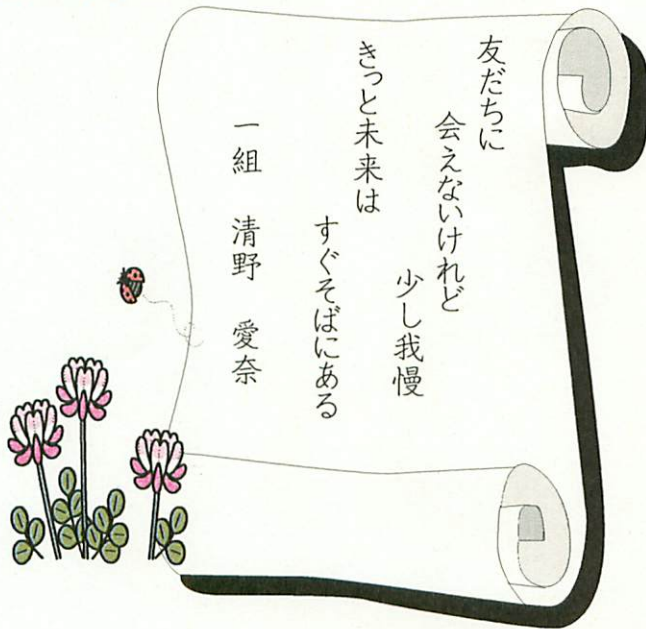 友だちに
会えないけれど
少し我慢
きっと未来は
すぐそばにある
一組 清野 愛奈